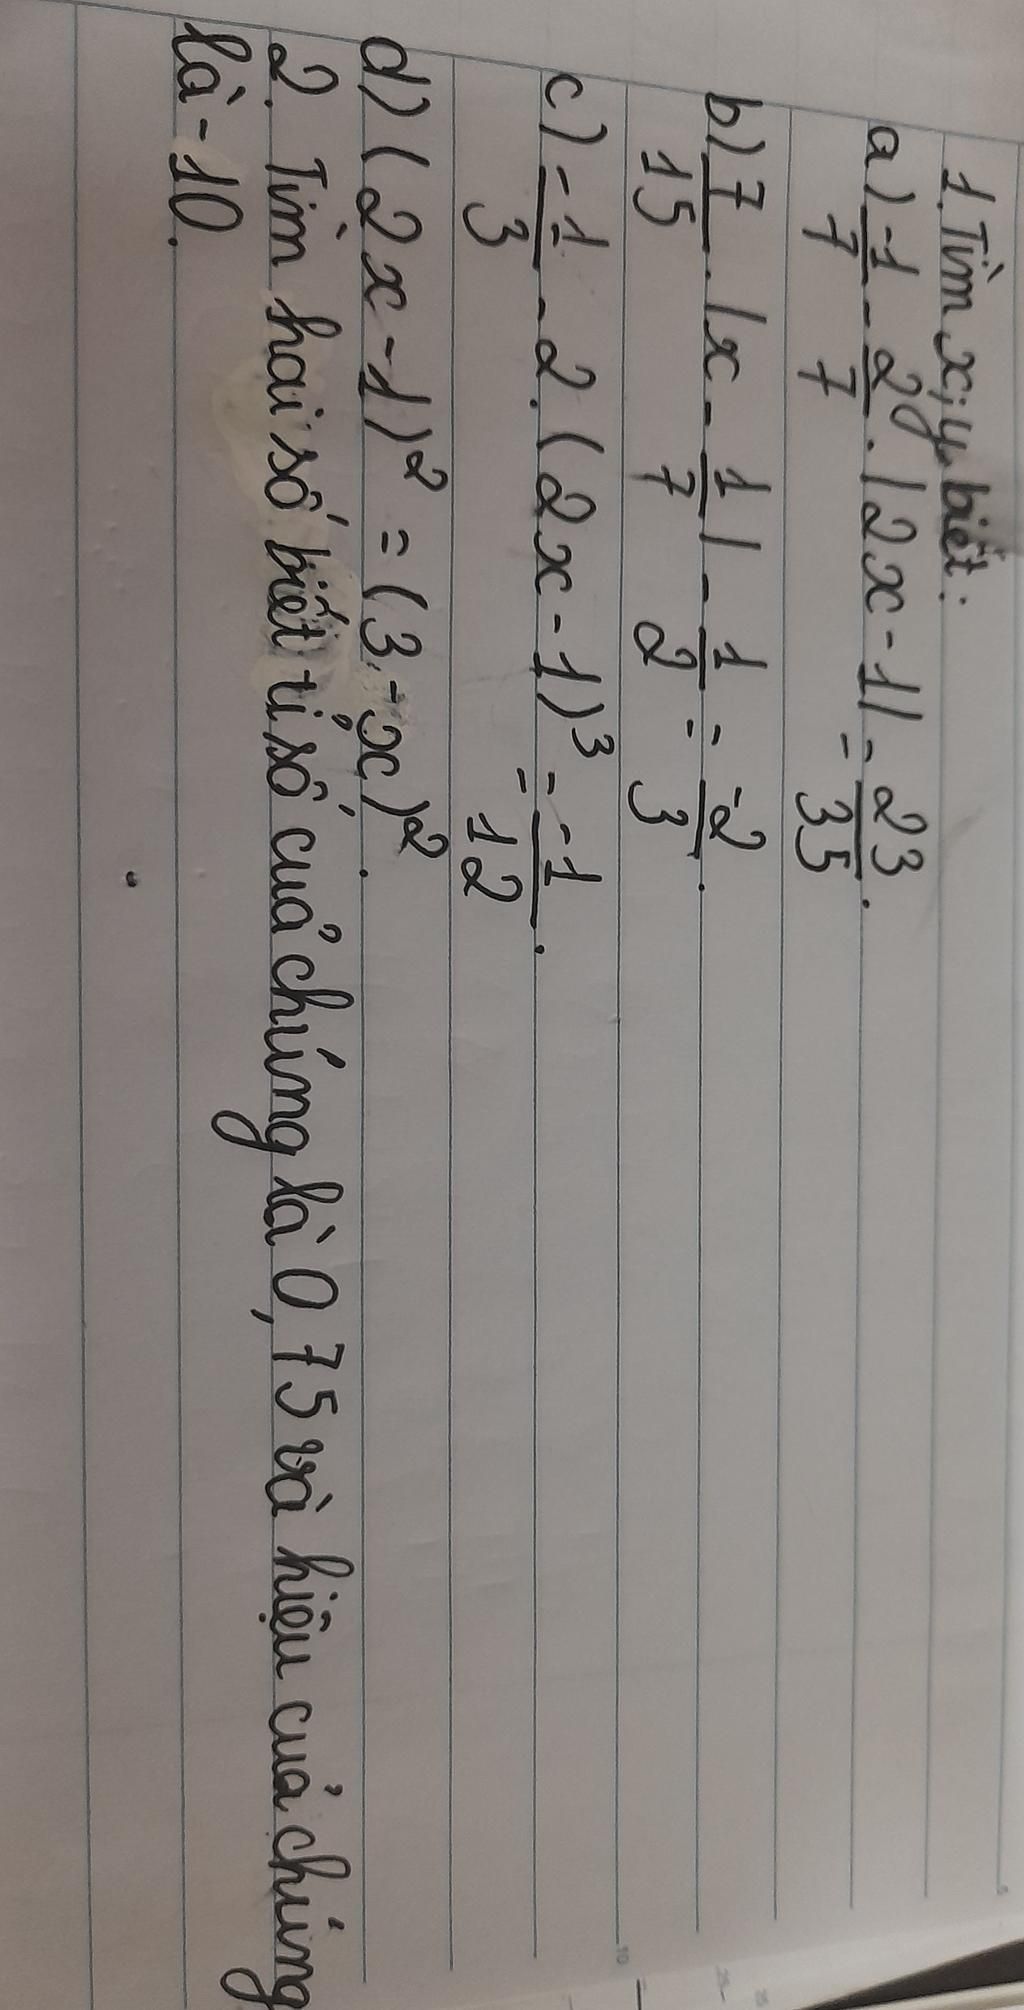 1. Tìm x; y biết:
a) -1/7 - 2/7 . |2x - 1| = 23/35.
b) 7/15 . |x - 1/7| - 1/2 = -2/3.
c) -1/3 - 2. (2x - 1)³ = -1/12.
d) (2x - 1)² = (3 - x)².
2. Tìm hai số biết tỉ số của chúng là 0,75 và hiệu của chúng
là -10.